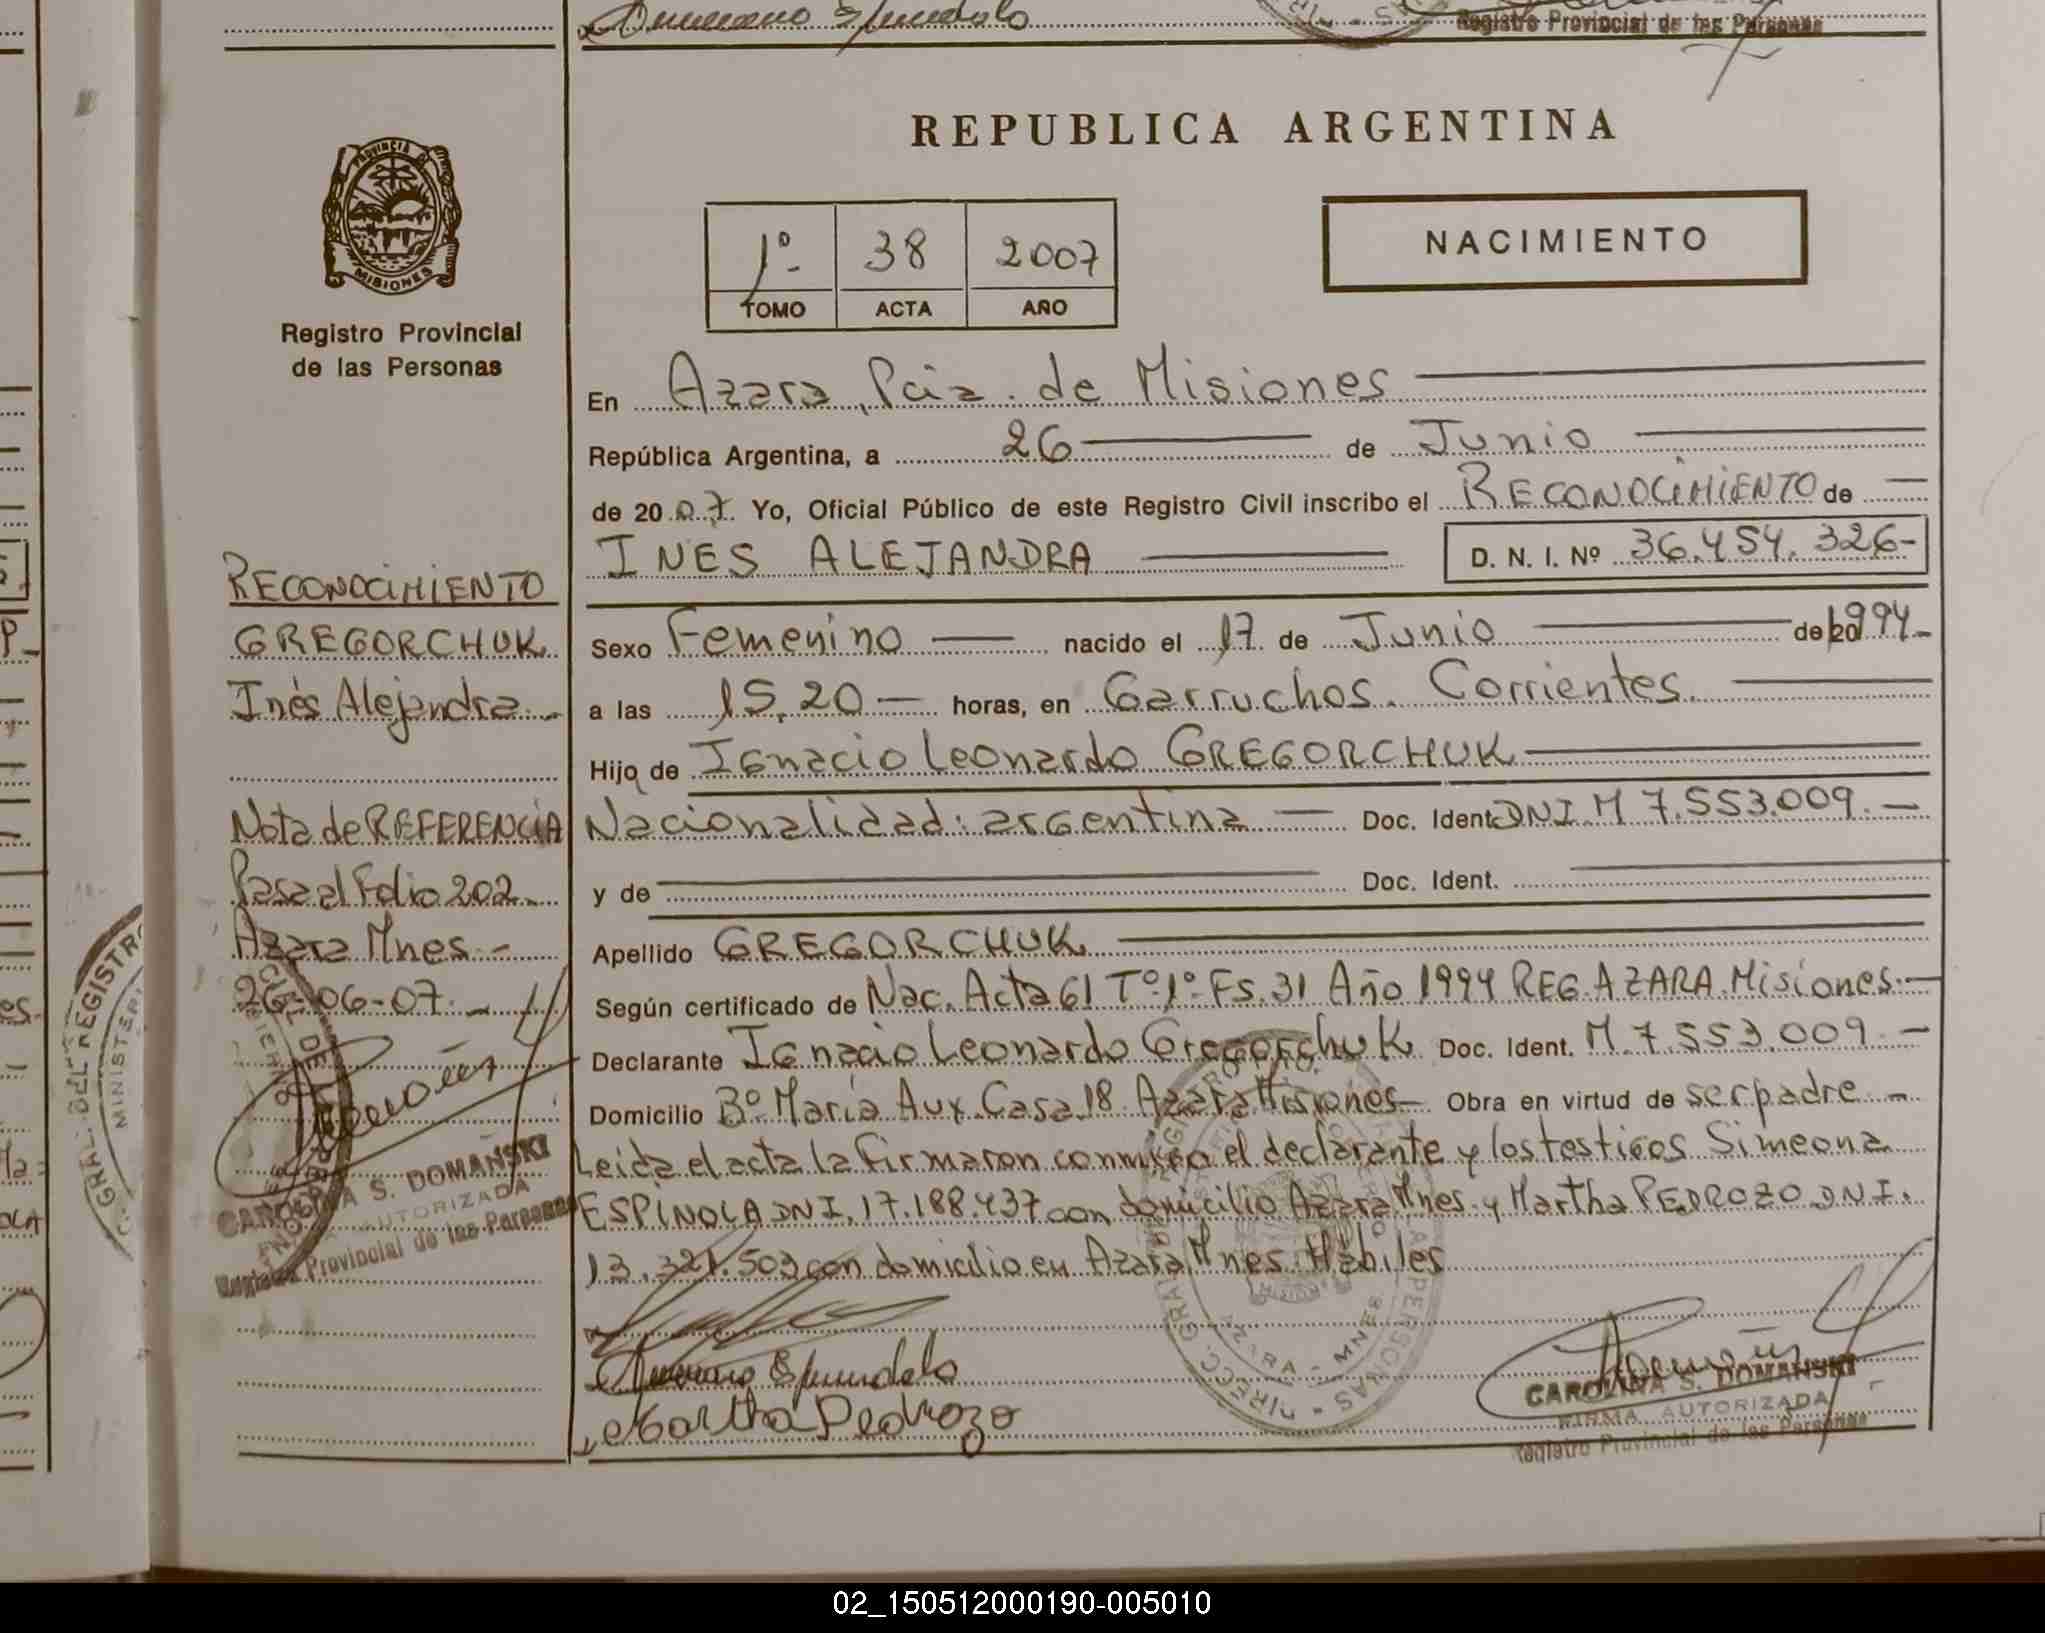 Registro Provincial de las Personas
REPUBLICA ARGENTINA
PROVINCIA DE
MISIONES
Registro Provincial
de las Personas
1º- 38 2007
TOMO ACTA AÑO
NACIMIENTO
En Azara, Pcia. de Misiones
República Argentina, a 26 de Junio
de 2007. Yo, Oficial Público de este Registro Civil inscribo el RECONOCIMIENTO de
INES ALEJANDRA D. N. I. Nº 36.454.326-
Sexo Femenino nacido el 17 de Junio de 1994-
a las 15,20 horas, en Garruchos. Corrientes.
Hija de Ignacio Leonardo GREGORCHUK
Nacionalidad: argentina Doc. Ident. DNI. M 7.553.009.-
y de Doc. Ident.
Apellido GREGORCHUK
Según certificado de Nac. Acta 61 Tº.1º. Fs. 31 Año 1994 REG. AZARA. Misiones.-
Declarante Ignacio Leonardo Gregorchuk Doc. Ident. M. 7.553.009.-
Domicilio Bº. María Aux. Casa 18. Azara Misiones- Obra en virtud de ser padre.-
Leida el acta la firmaron conmigo el declarante y los testigos Simeona
ESPÍNOLA DNI. 17.188.437 con domicilio Azara Mnes. y Martha PEDROZO D.N.I.
13.321.503 con domicilio en Azara Mnes. Hábiles
Martha Pedrozo
CAROLINA S. DOMAÑSKI
FIRMA AUTORIZADA
Registro Provincial de las Personas
AZARA - MNES
RECONOCIMIENTO
GREGORCHUK
Inés Alejandra.-
Nota de REFERENCIA
Pasa al Folio 202.
Azara Mnes.-
26-06-07.-
CAROLINA S. DOMAÑSKI
AUTORIZADA
Registro Provincial de las Personas
GRAL. DEL REGISTRO
MINISTERI
02_150512000190-005010